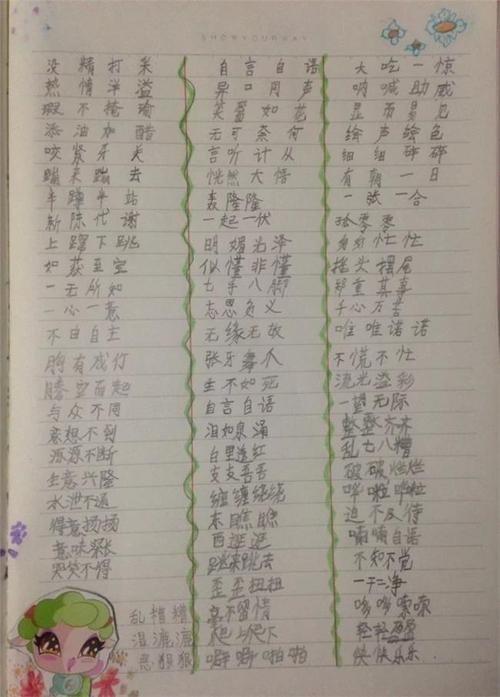 SHORYOURWAY
没精打采
热情洋溢
瑕不掩瑜
添油加醋
咬紧牙关
蹦来蹦去
半蹲半站
新陈代谢
上蹿下跳
如获至宝
一无所知
一心一意
不由自主
胸有成竹
腾空而起
与众不同
意想不到
源源不断
生意兴隆
水泄不通
得意扬扬
意味深长
哭笑不得
乱糟糟
湿漉漉
恶狠狠
自言自语
异口同声
笑靥如花
无可奈何
言听计从
恍然大悟
轰隆隆
一起一伏
明媚光泽
似懂非懂
七手八脚
忘恩负义
无缘无故
张牙舞爪
生不如死
自言自语
泪如泉涌
白里透红
支支吾吾
缠缠绕绕
东瞧瞧
西逛逛
跳来跳去
歪歪扭扭
毫不留情
爬上爬下
噼噼啪啪
大吃一惊
呐喊助威
显而易见
绘声绘色
细细碎碎
有朝一日
一张一合
孤零零
匆匆忙忙
摇头摆尾
郑重其事
千心万苦
唯唯诺诺
不慌不忙
流光溢彩
一望无际
整整齐齐
乱七八糟
破破烂烂
哗啦哗啦
迫不及待
喃喃自语
不知不觉
一干二净
哆哆嗦嗦
快快乐乐